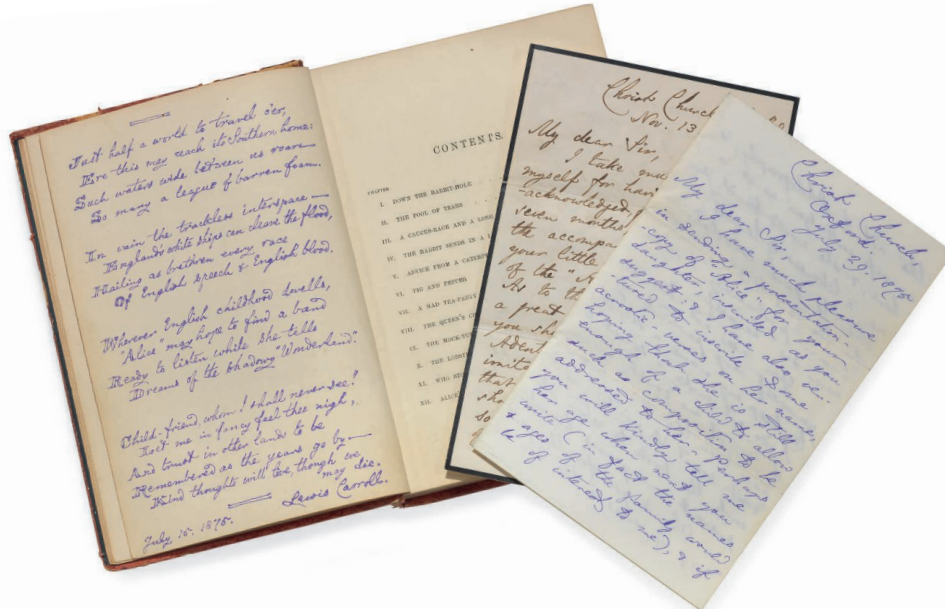 Just half a world to travel o'er,
Ere this may reach its Southern home:
Such waters wide between us roar—
So many a league of barren foam.
In vain the trackless interspace—
England's white ships can cleave the flood,
Hailing as brethren every race
Of English speech & English blood.
Wherever English childhood dwells,
"Alice" may hope to find a band
Ready to listen while she tells
Dreams of the shadowy "Wonderland."
Child-friend, whom I shall never see!
Let me in fancy feel thee nigh,
And trust in other lands to be
Remembered as the years go by—
Kind thoughts will live, though we
may die.
Lewis Carroll.
July 15. 1875.
CONTENTS.
CHAPTER
I. DOWN THE RABBIT-HOLE
II. THE POOL OF TEARS
III. A CAUCUS-RACE AND A LONG
IV. THE RABBIT SENDS IN A
V. ADVICE FROM A
VI. PIG AND PEPPER
VII. A MAD TEA-PARTY
VIII. THE QUEEN'S
IX. THE MOCK
X. THE LOBSTER
XI. WHO
XII. ALICE
Christ Church
Nov. 13
My dear Sir,
I take
myself for
-acknowledged
seven months
the
your little
of the
As to the
a great
you
that
Christ Church,
Oxford.
July 29. 1875
My dear Sir,
I have much pleasure
in sending a presentation-
copy of "Alice" for your
daughter, inscribed as you
suggest, & I have also ve-
-ntured to inscribe some
acrostic verses on her name,
hoping that she is still
enough of a child to allow
such a composition to be
addressed to her. Perhaps
you will kindly tell me
her age when next you
write (in fact the names
& ages of the family would
be of interest to me), & if